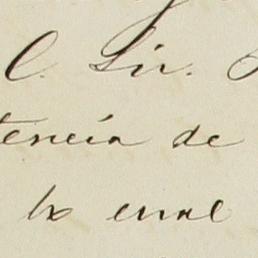 C. Lic.
tencia de
lo cual